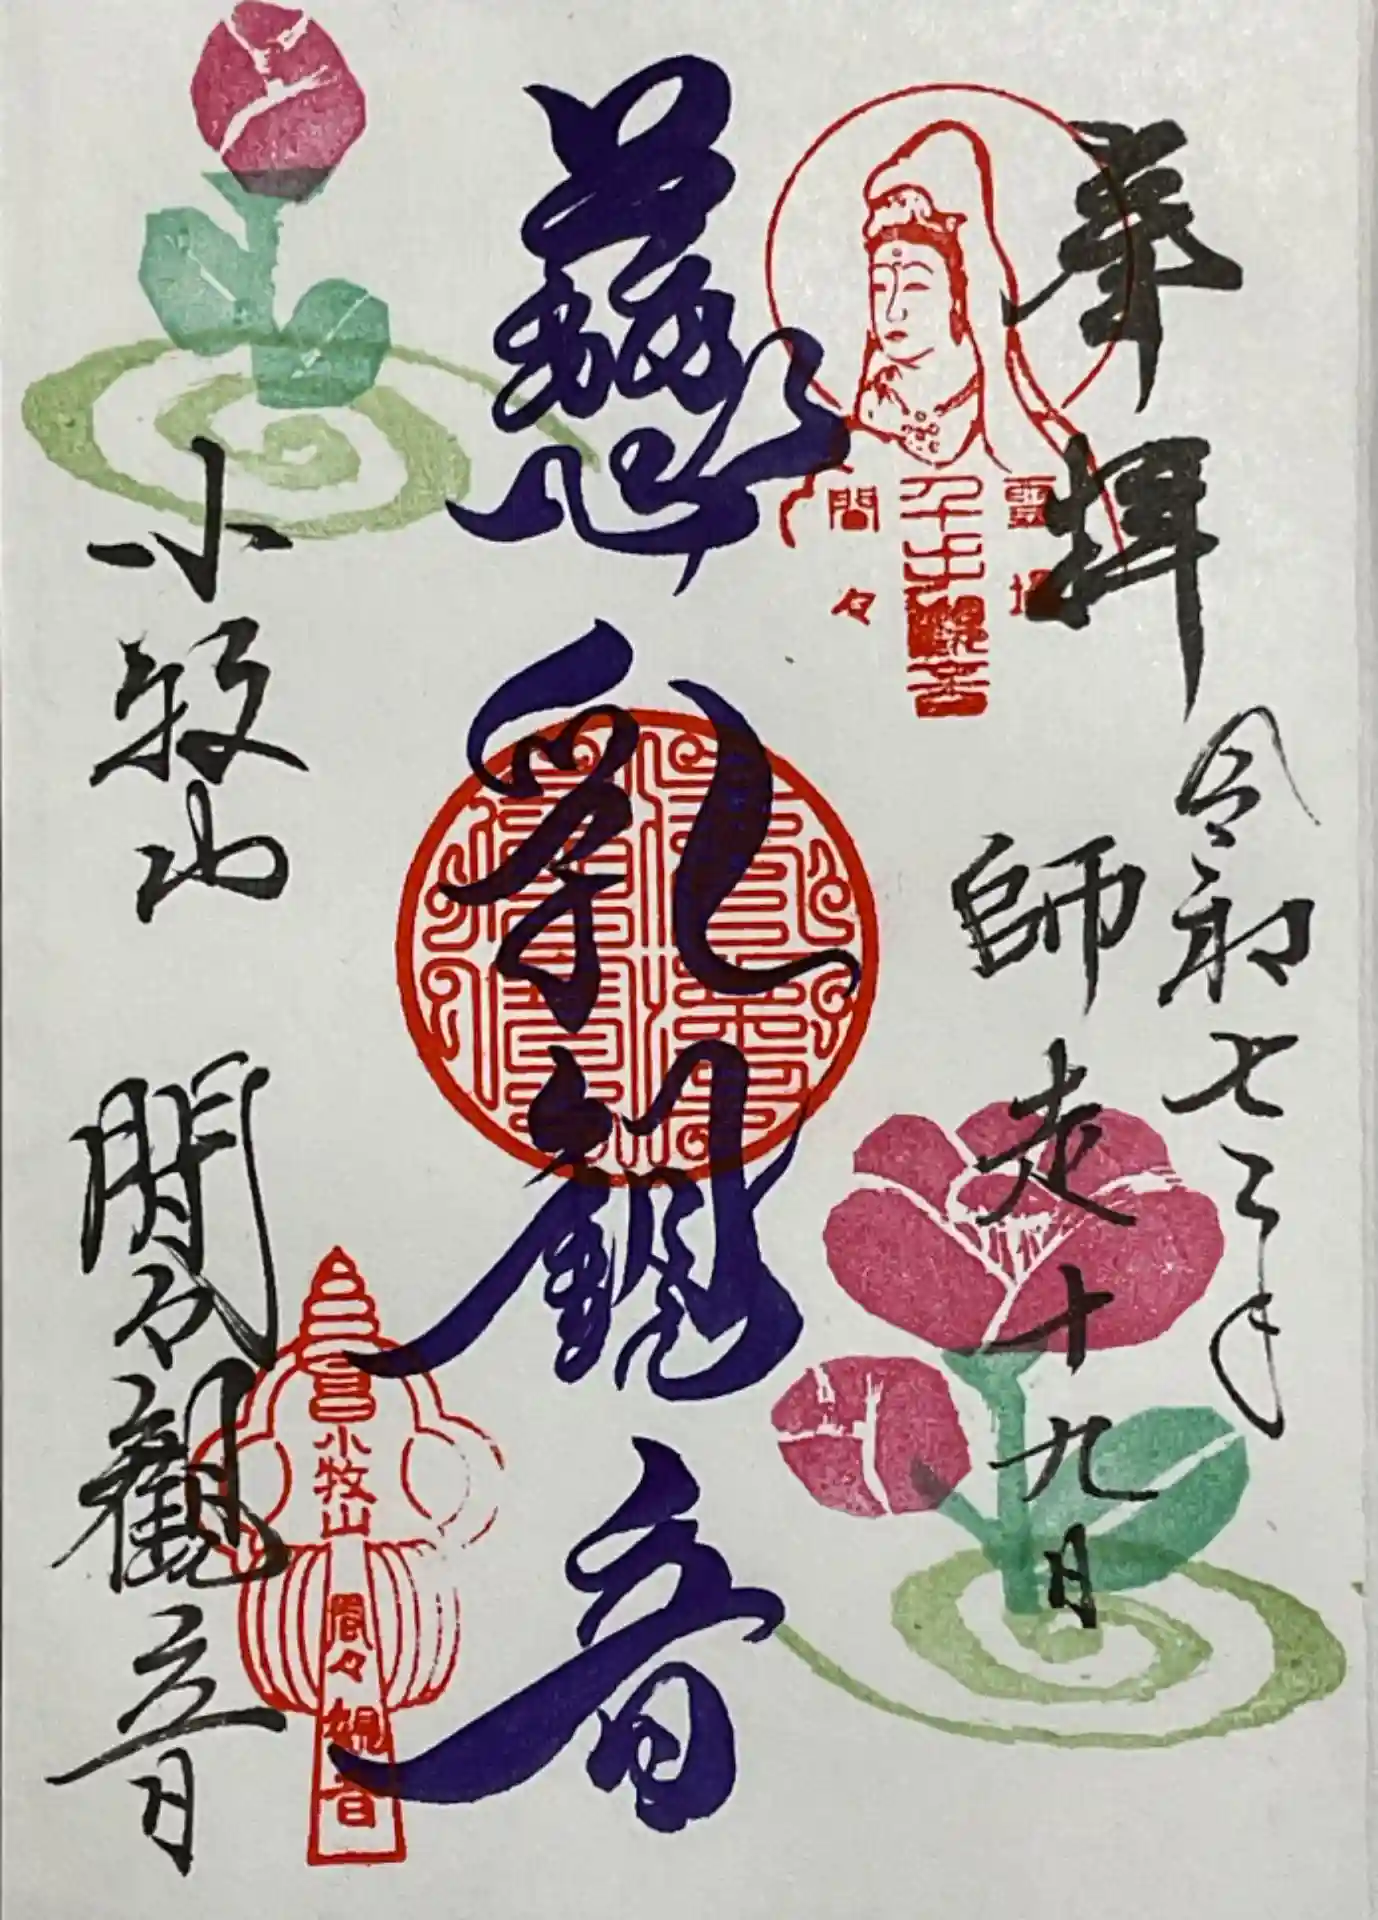 奉拝
令和七年
師走十九日
霊場
千手観音
間々
慈乳観音
小牧山
間々観音
小牧山
間々観音